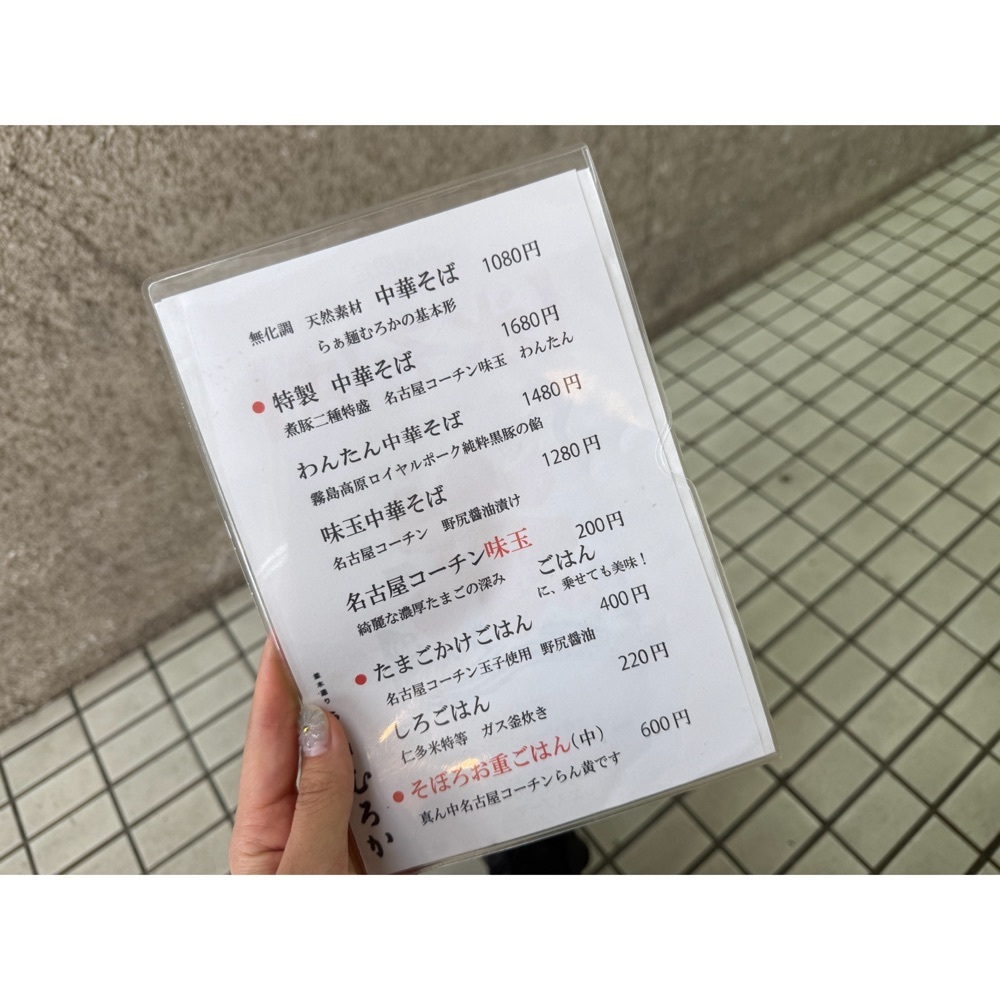 無化調 天然素材 中華そば 1080円
らぁ麺むろかの基本形
● 特製 中華そば 1680円
煮豚二種特盛 名古屋コーチン味玉 わんたん
わんたん中華そば 1480円
霧島高原ロイヤルポーク純粋黒豚の餡
味玉中華そば 1280円
名古屋コーチン 野尻醤油漬け
名古屋コーチン味玉 200円
綺麗な濃厚たまごの深み ごはん
に、乗せても美味！
● たまごかけごはん 400円
名古屋コーチン玉子使用 野尻醤油
しろごはん 220円
仁多米特等 ガス釜炊き
● そぼろお重ごはん(中) 600円
真ん中名古屋コーチンらん黄です
むろか